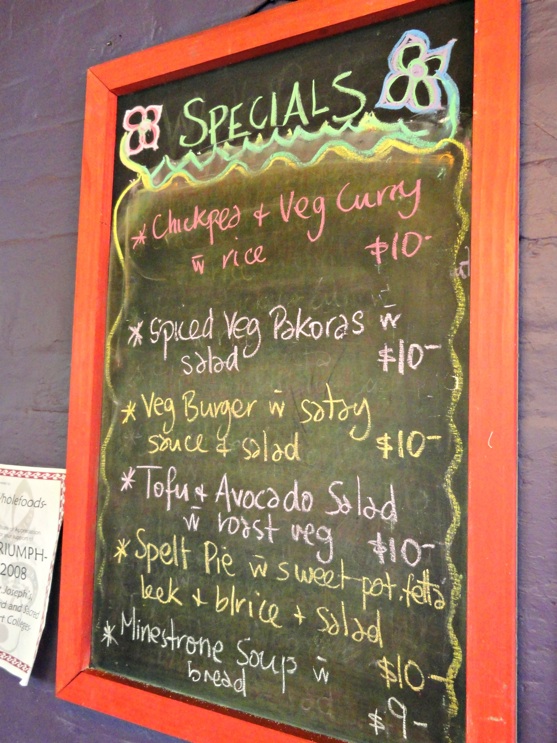 SPECIALS
* Chickpea + Veg Curry
w̄ rice $10-
* Spiced Veg Pakoras w̄
salad $10-
* Veg Burger w̄ satay
sauce + salad $10-
* Tofu + Avocado Salad
w̄ roast veg $10-
* Spelt Pie w̄ sweet pot. fetta
leek + b/rice + salad
$10-
* Minestrone Soup w̄
bread $9-
holefoods-
RIUMPH-
2008
Joseph's